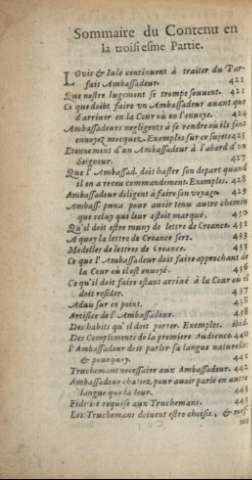 Sommaire du Contenu en
la troisiesme Partie.
LOuis & Iule continuent à traiter du Parfait Ambassadeur. 421
Que nostre Iugement se trompe souuent. 421
Ce que doibt faire vn Ambassadeur auant que
d'arriuer en la Cour où on l'enuoye. 422
Ambassadeurs negligents à se rendre où ils sont
enuoyez mocquez. Exemples sur ce sujet. 423
Estonnement d'un Ambassadeur à l'abord d'un
Seigneur. 427
Que l'Ambassad. doit haster son depart quand
il en a receu commandement. Exemples. 428
Ambassadeur diligent à faire son voyage. 429
Ambass. puny pour auoir tenu autre chemin
que celuy qui leur estoit marqué. 430
Qu'il doit estre muny de lettre de Creance. 431
A quoy la lettre de Creance sert.
Modelles de lettres de Creance. 433
Ce que l'Ambassadeur doit faire approchant de
la Cour où il est enuoyé. 436
Ce qu'il doit faire estant arriué à la Cour où il
doit resider. 437
Aduis sur ce point.
Artifice de l'Ambassadeur. 438
Des habits qu'il doit porter. Exemples. ibid.
Des Compliments de la premiere Audience. 440
L'Ambassadeur doit parler sa langue naturelle
& pourquoy. 441
Truchement necessaire aux Ambassadeur. 442
Ambassadeur chastiez pour auoir parlé en autre
langue que la leur.
Fidelité requise aux Truchemans.
Les Truchemans doiuent estre choisis, &